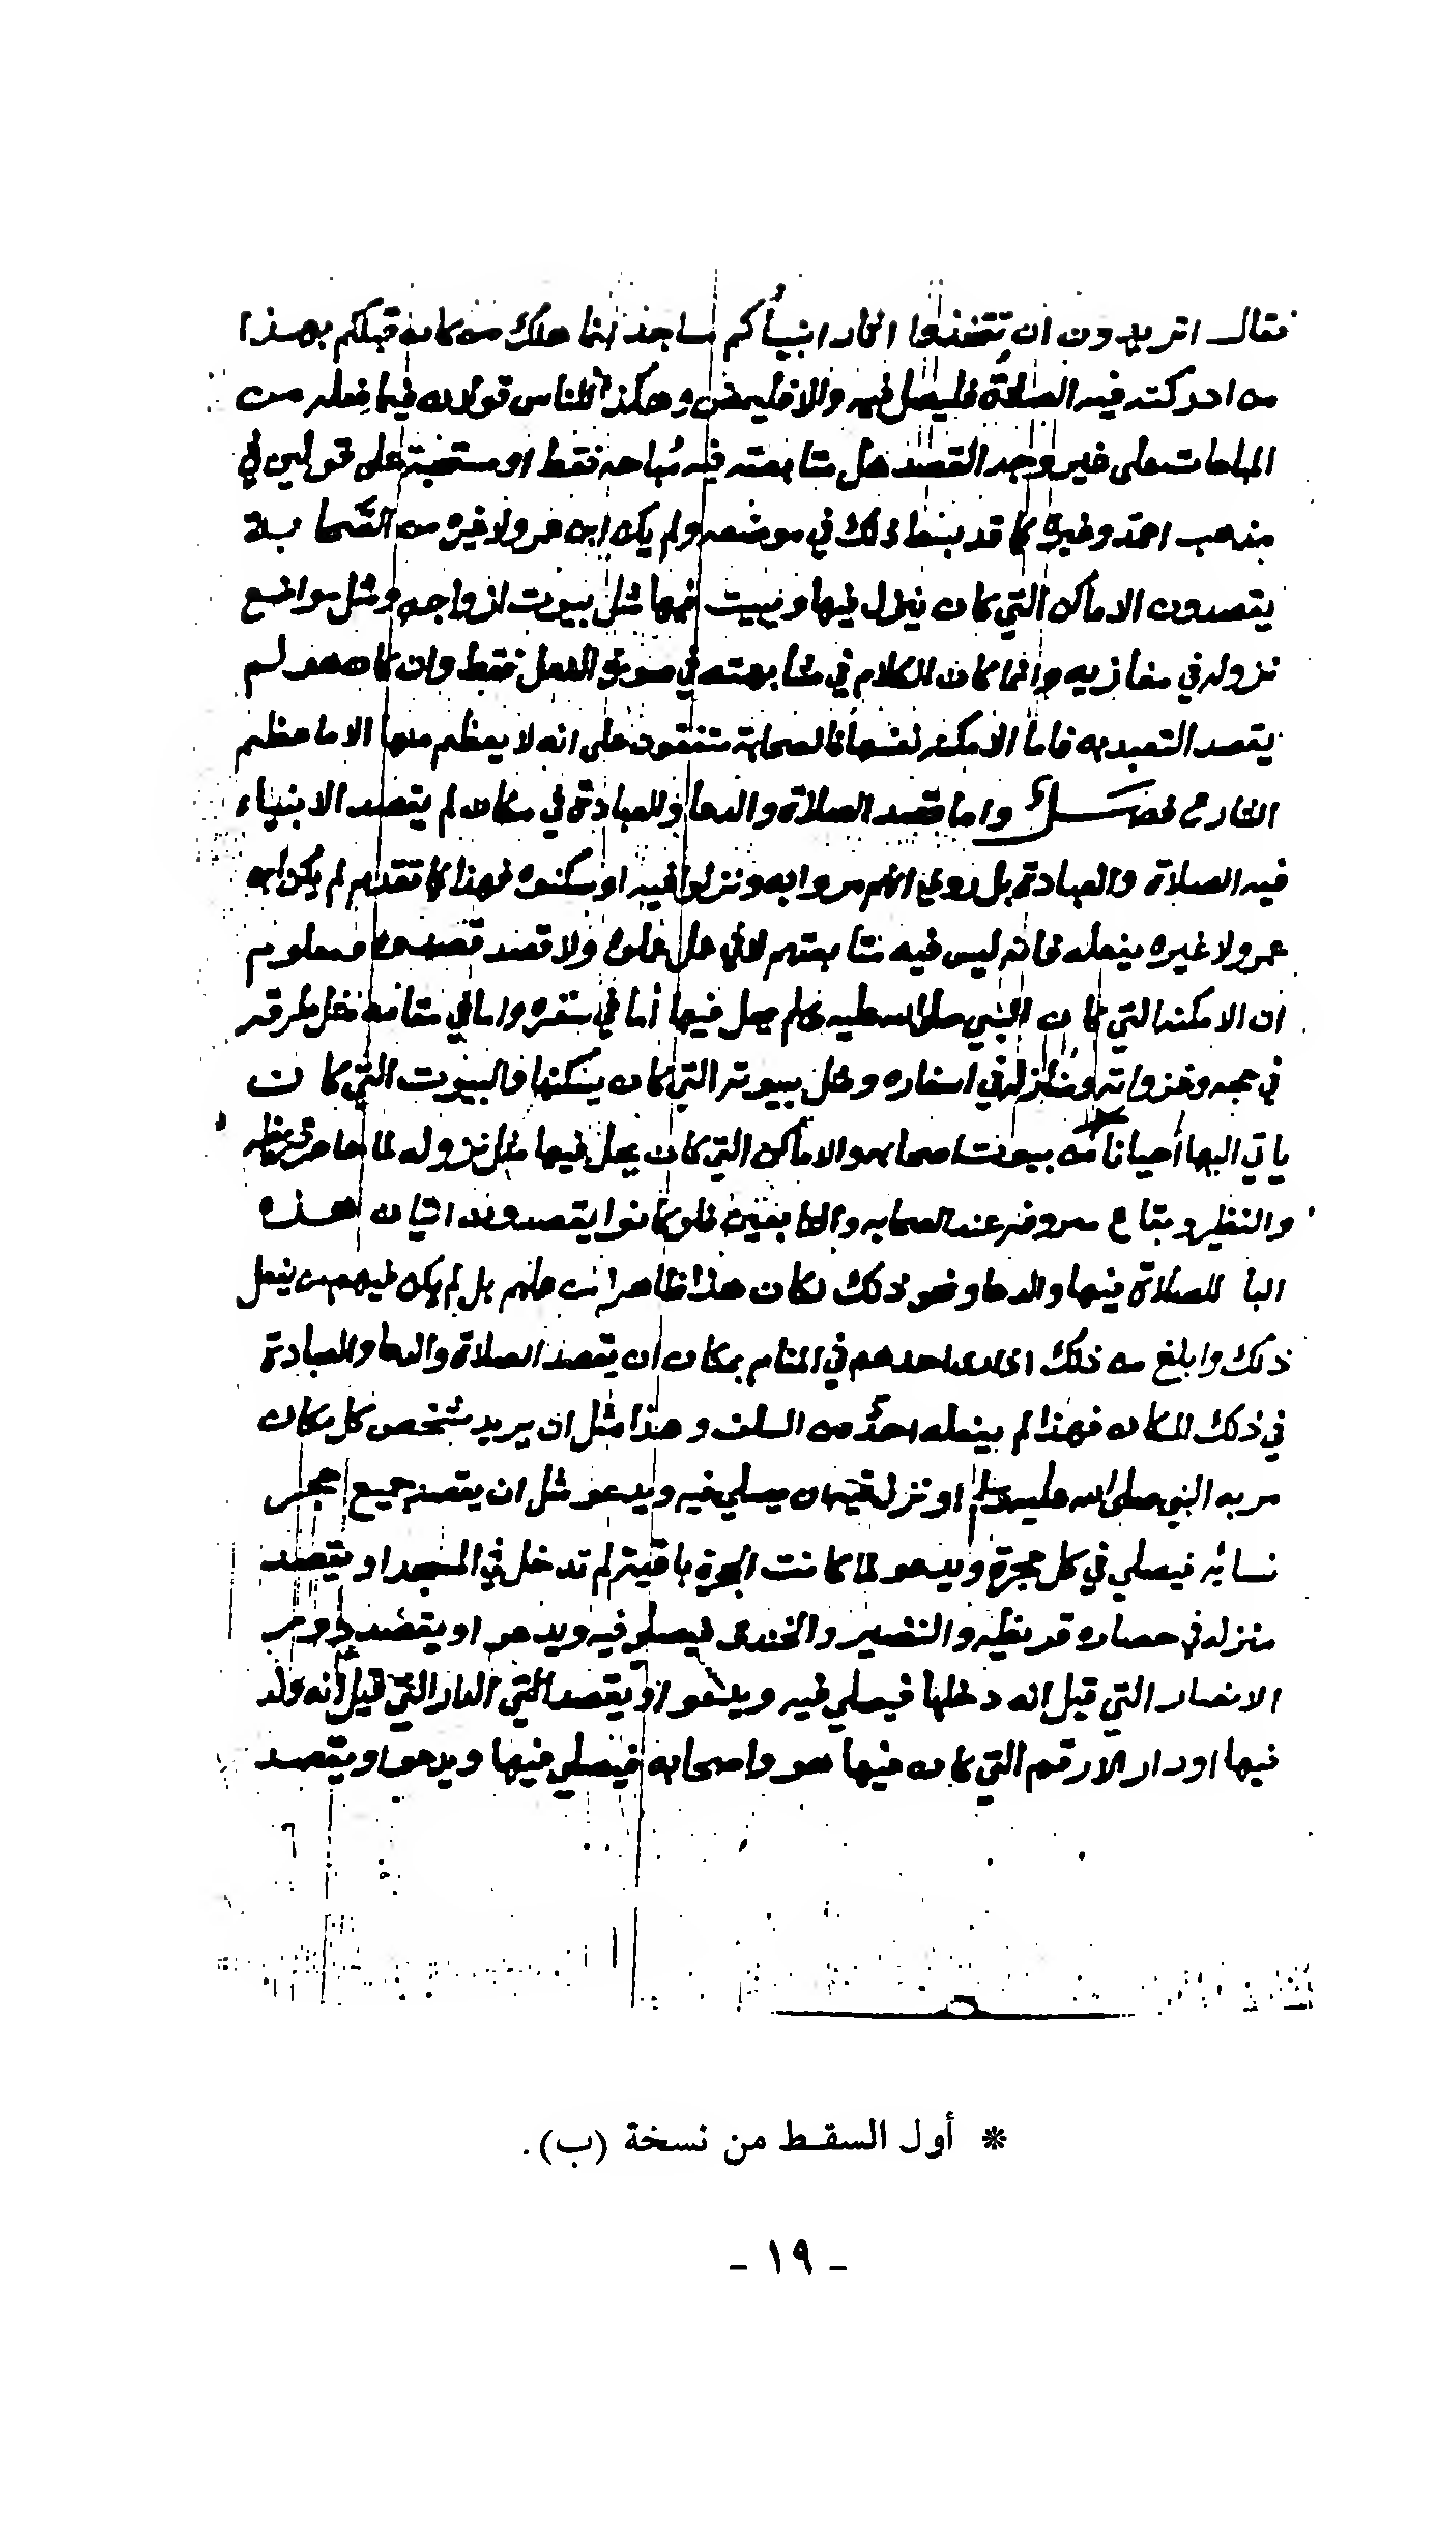 فقال اتريدون ان تتخذوا اثار انبيأكم مساجد انما هلك من كان قبلكم بهذا
من ادركته فيه الصلاة فليصل فيه والا فليمض وهكذا للناس قولان فيما فعله من
المباحات على غير وجه القصد هل متابعته فيه مباحه فقط او مستحبة على قولين في
مذهب احمد وغيره كما قد بسط ذلك في موضعه ولم يكن ابن عمر ولا غيره من الصحا بة
يقصدون الاماكن التي كان ينزل فيها ويبيت فيها مثل بيوت ازواجه ومثل مواضع
نزوله في مغازيه وانما كان الكلام في مشابهته في صورة الفعل فقط وان كان هو لم
يقصد التعبد به فاما الامكنه نفسها فالصحابة متفقون على انه لا يعظم منها الا ما عظم
الشارع فصل واما قصد الصلاة والدعا والعبادة في مكان لم يقصد الانبياء
فيه الصلاة والعبادة بل روي انهم مروا به ونزلوا فيه او سكنوه فهذا كما تقدم لم يكن ابن
عمر ولا غيره يفعله فانه ليس فيه متابعتهم لا في عمل عملوه ولا قصد قصدوه ومعلوم
ان الامكنه التي كان النبي صلى الله عليه وسلم يحل فيها أما في سفره واما في مقامه مثل طرقه
في حجه وغزواته ومنازله في اسفاره ومثل بيوته التي كان يسكنها والبيوت التي كا ن
ياتي اليها أحيانا من بيوت اصحابه والاماكن التي كان يحل فيها مثل نزوله لما حاصر قريظه
والنظير وبقاع معروفه عند الصحابه والتابعين فلو كانوا يقصدون اتيان هذه
البا للصلاة فيها والدعا ونحو ذلك لكان هذا ظاهرا عنهم بل لم يكن فيهم من يفعل
ذلك وابلغ من ذلك احدهم في المنام بمكان ان يقصد الصلاة والدعا والعبادة
في ذلك المكان فهذا لم يفعله احدٌ من السلف وهذا مثل ان يريد شخص كل مكان
مر به النبي صلى الله عليه وسلم او نزل فيه ان يصلي فيه ويدعو مثل ان يقصد جميع حجر
نسائه فيصلي في كل حجرة ويدعو لما كانت الحجرة باقية لم تدخل في المسجد او يقصد
منزله في حصاره قريظه والنضير والخندق فيصلي فيه ويدعو او يقصد دور
الانصار التي قيل انه دخلها فيصلي فيه ويدعو او يقصد التي الدار التي قيل أنه ولد
فيها او دار الارقم التي كان فيها هو واصحابه فيصلي فيها ويدعو او يقصد
* أول السقط من نسخة (ب).
- ١٩ -